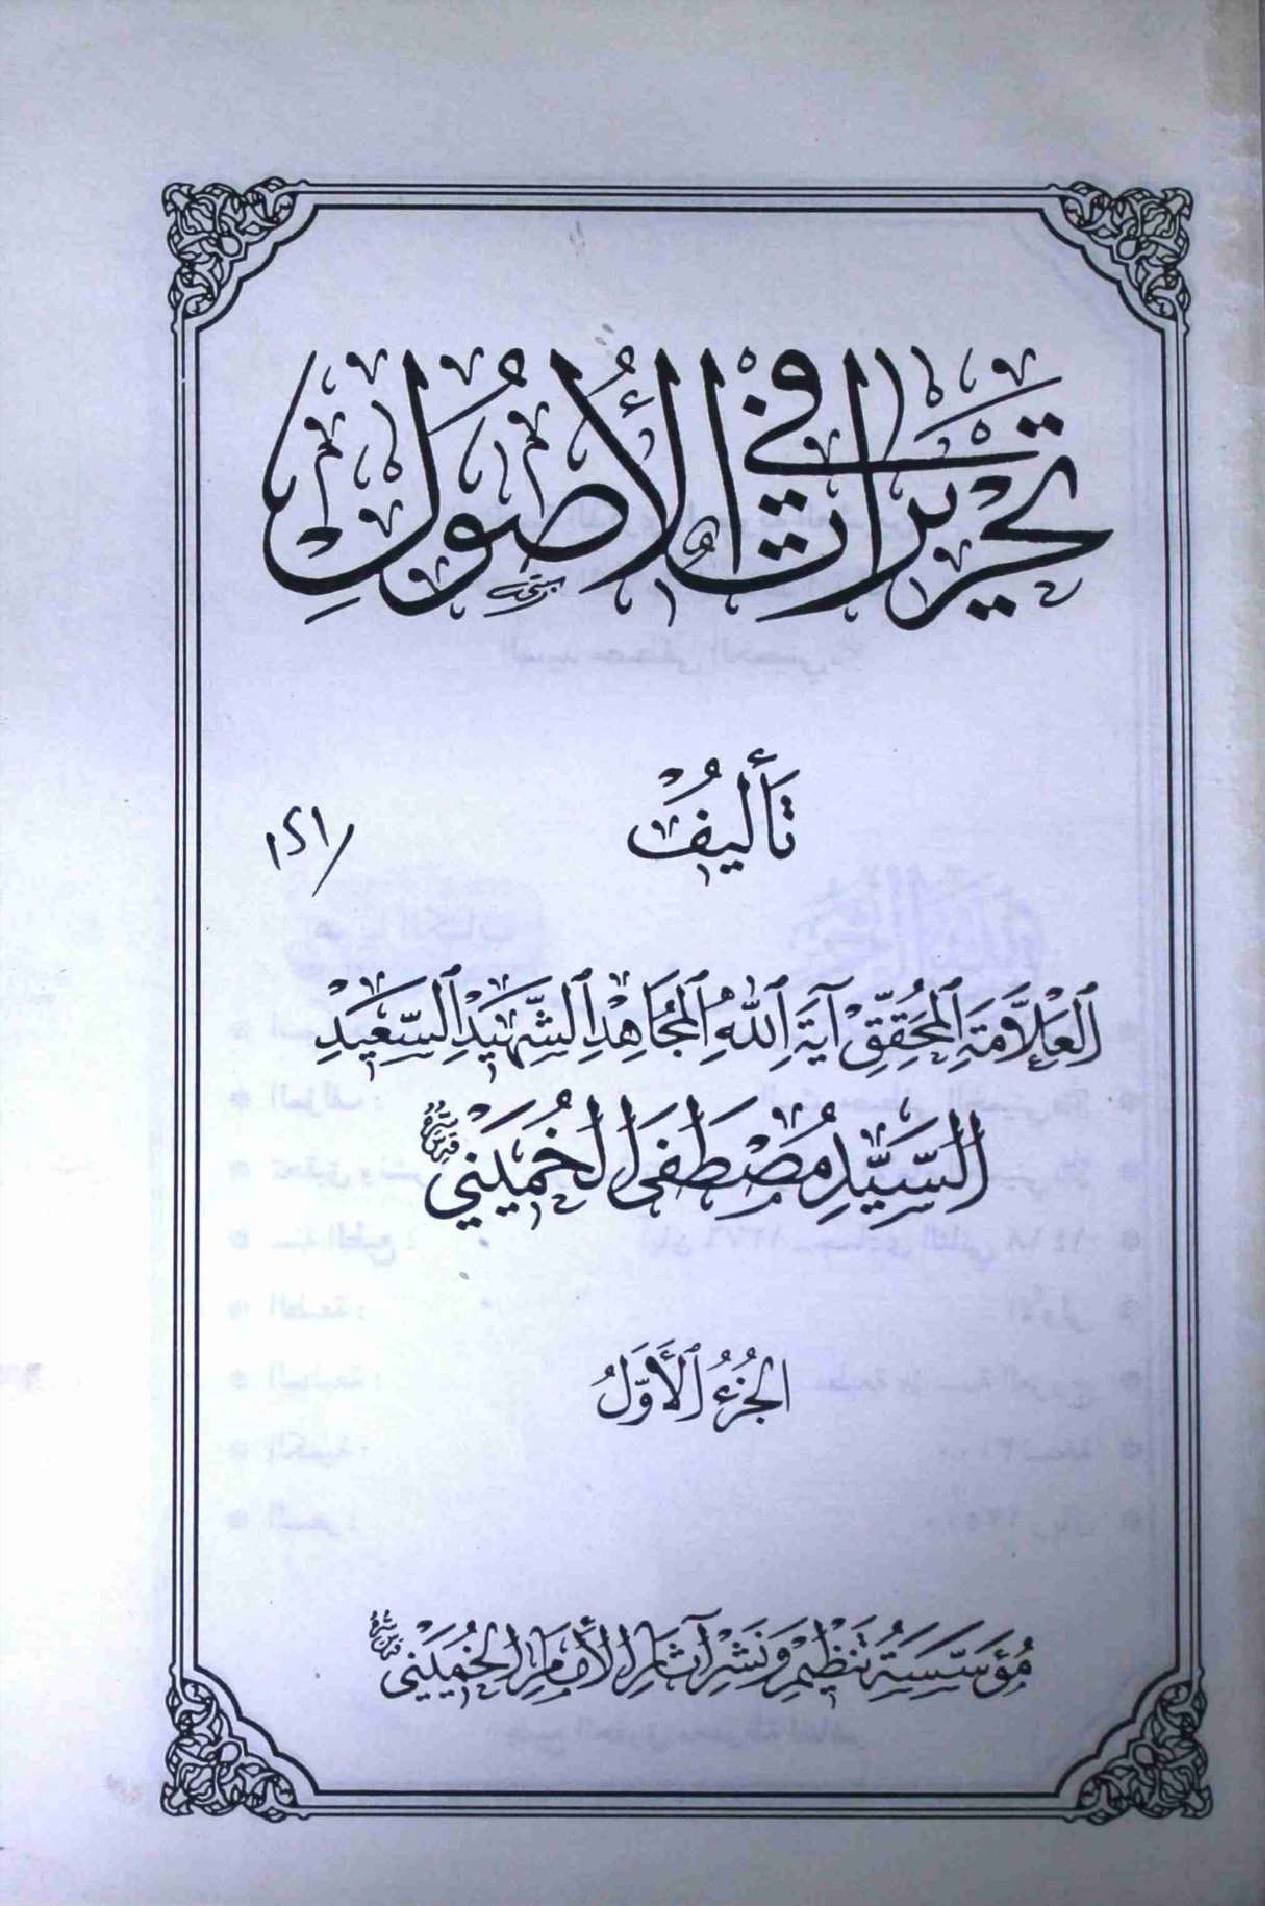 تحريرات في الأصول
تأليف
١٤١/
العلامة المحقق آية الله المجاهد الشهيد السعيد
السيد مصطفى الخميني
الجزء الأول
مؤسسة تنظيم ونشر آثار الإمام الخميني